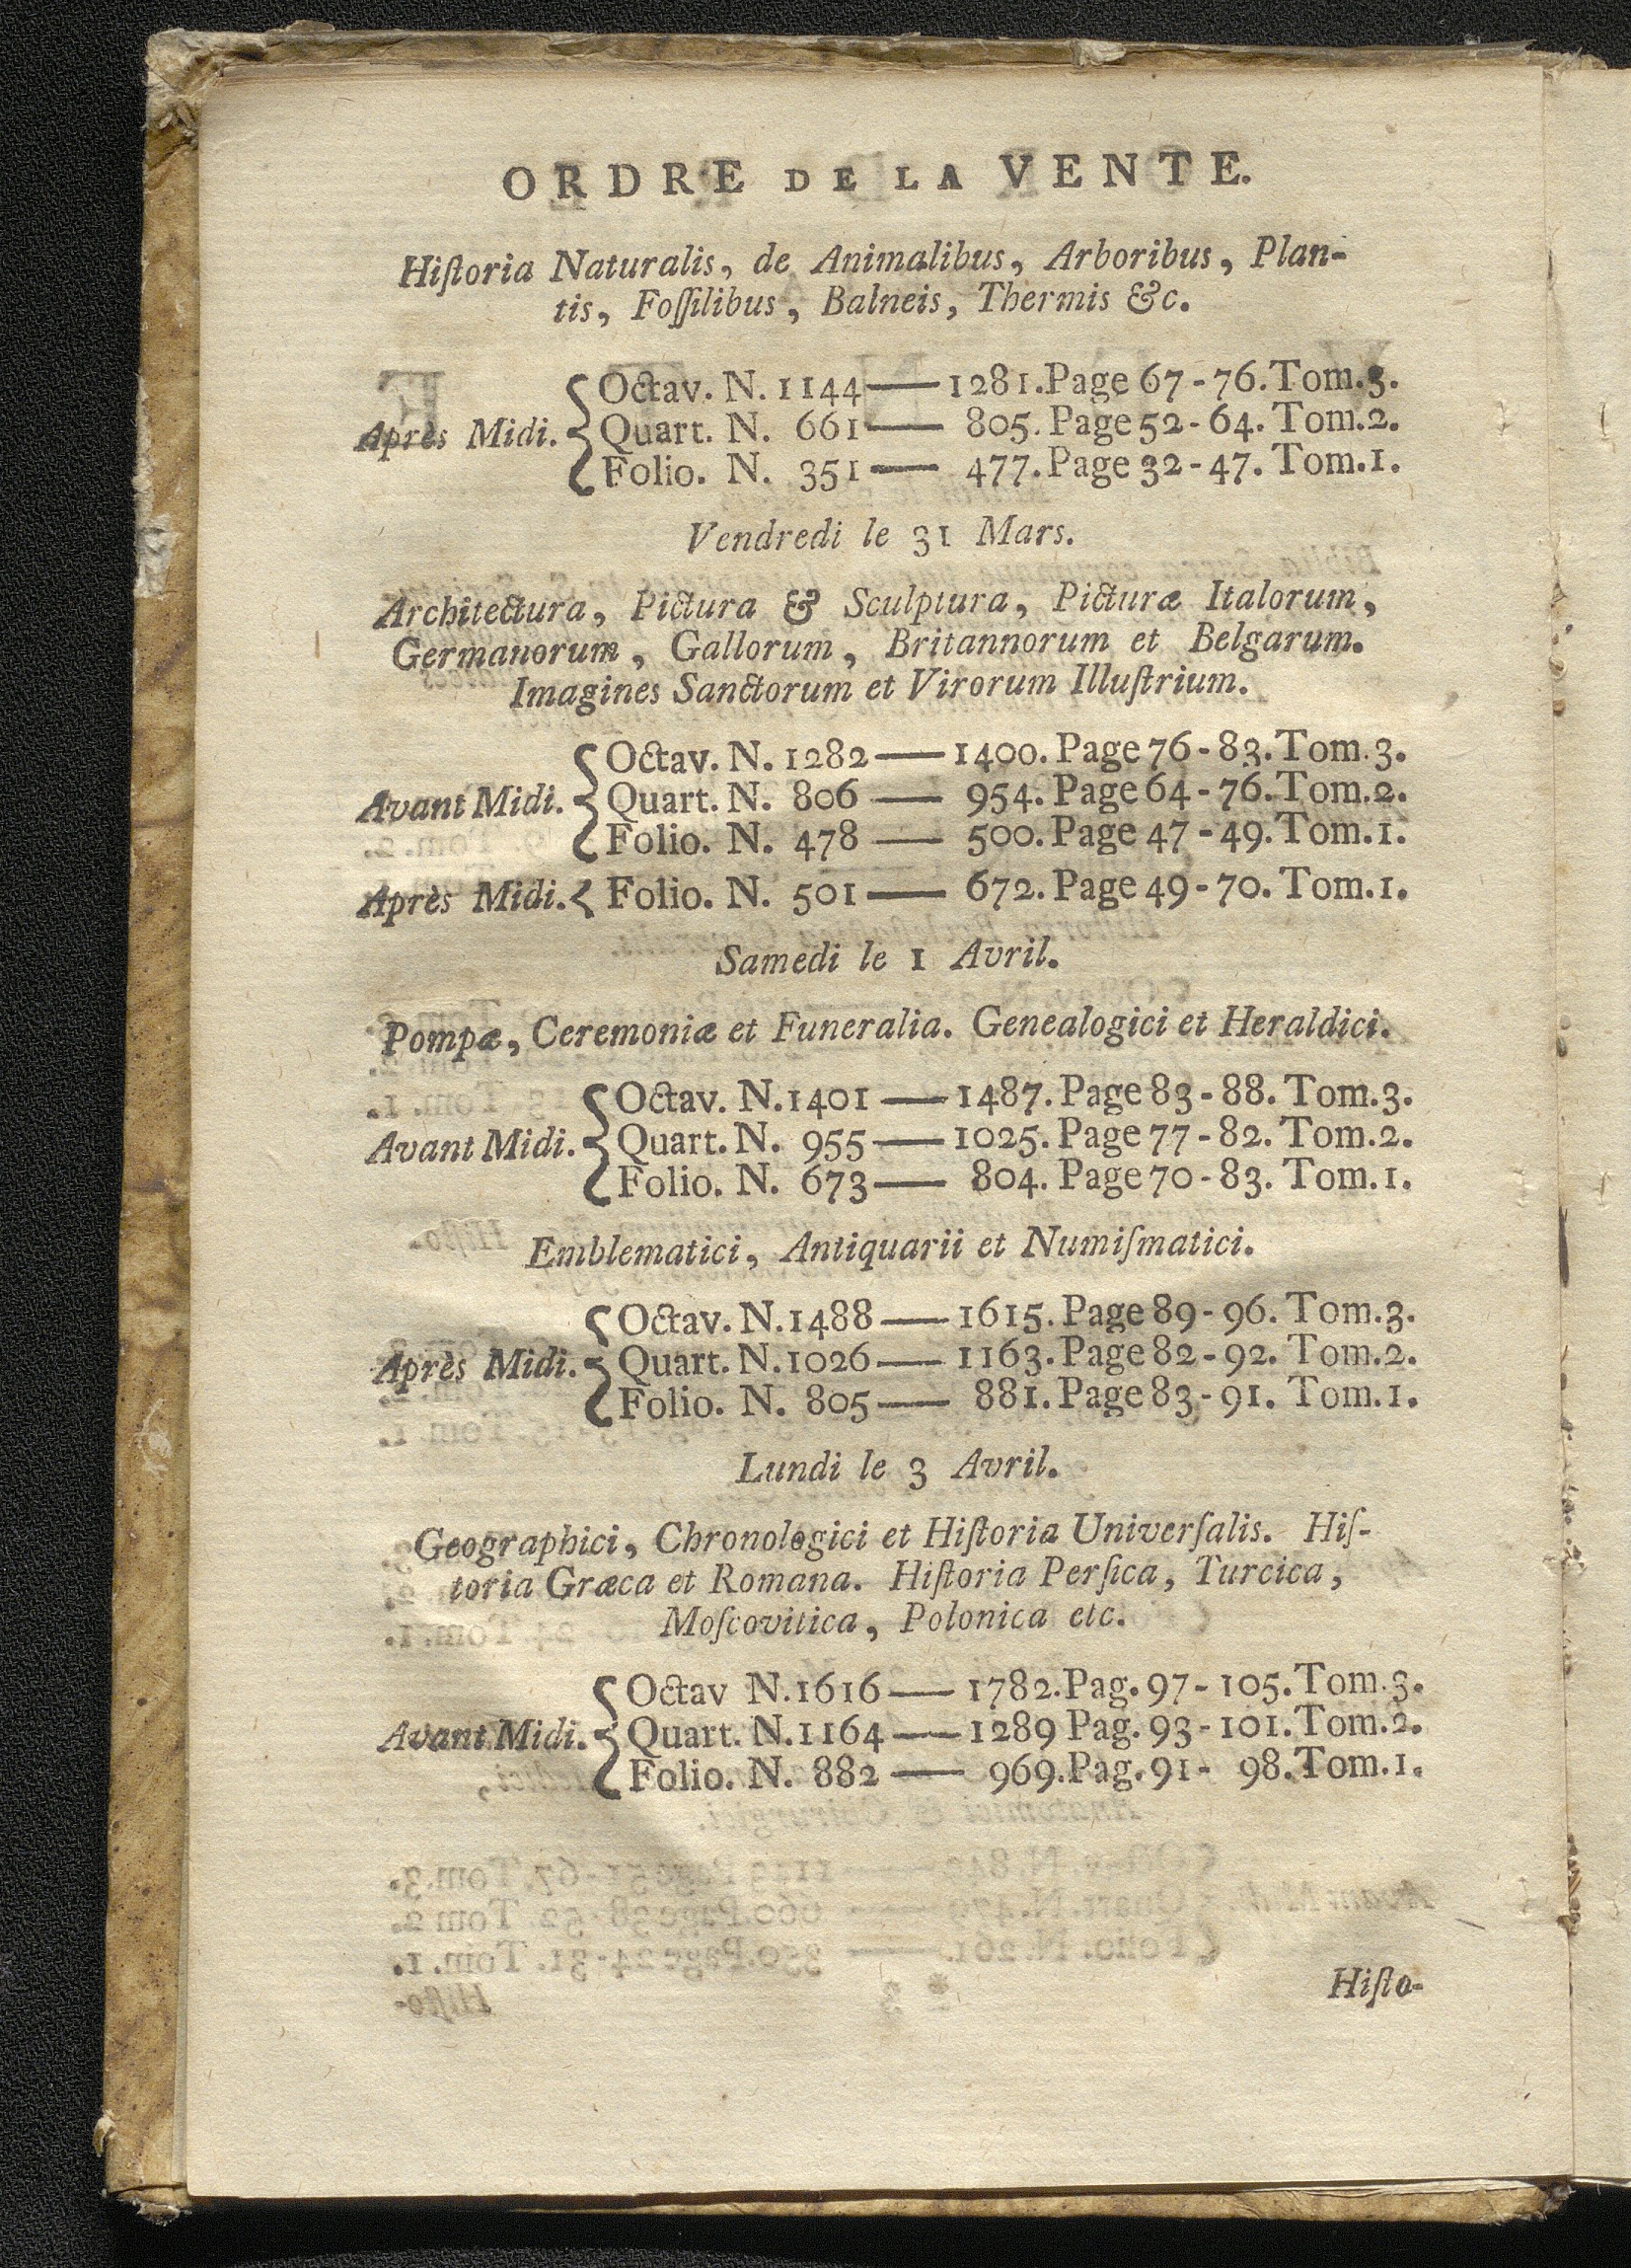 ORDRE DE LA VENTE.
Hiſtoria Naturalis, de Animalibus, Arboribus, Plan-
tis, Foſſilibus, Balneis, Thermis &c.
Octav. N. 1144 — 1281. Page 67 - 76. Tom. 3.
Après Midi. { Quart. N. 661 — 805. Page 52 - 64. Tom. 2.
Folio. N. 351 — 477. Page 32 - 47. Tom. 1.
Vendredi le 31 Mars.
Architectura, Pictura & Sculptura, Picturæ Italorum,
Germanorum, Gallorum, Britannorum et Belgarum.
Imagines Sanctorum et Virorum Illuſtrium.
Octav. N. 1282 — 1400. Page 76 - 83. Tom. 3.
Avant Midi. { Quart. N. 806 — 954. Page 64 - 76. Tom. 2.
Folio. N. 478 — 500. Page 47 - 49. Tom. 1.
Après Midi. < Folio. N. 501 — 672. Page 49 - 70. Tom. 1.
Samedi le 1 Avril.
Pompæ, Ceremoniæ et Funeralia. Genealogici et Heraldici.
Octav. N. 1401 — 1487. Page 83 - 88. Tom. 3.
Avant Midi. { Quart. N. 955 — 1025. Page 77 - 82. Tom. 2.
Folio. N. 673 — 804. Page 70 - 83. Tom. 1.
Emblematici, Antiquarii et Numiſmatici.
Octav. N. 1488 — 1615. Page 89 - 96. Tom. 3.
Après Midi. { Quart. N. 1026 — 1163. Page 82 - 92. Tom. 2.
Folio. N. 805 — 881. Page 83 - 91. Tom. 1.
Lundi le 3 Avril.
Geographici, Chronologici et Hiſtoria Univerſalis. Hiſ-
toria Græca et Romana. Hiſtoria Perſica, Turcica,
Moſcovitica, Polonica etc.
Octav N. 1616 — 1782. Pag. 97 - 105. Tom. 3.
Avant Midi. { Quart. N. 1164 — 1289 Pag. 93 - 101. Tom. 2.
Folio. N. 882 — 969. Pag. 91 - 98. Tom. 1.
Hiſto-